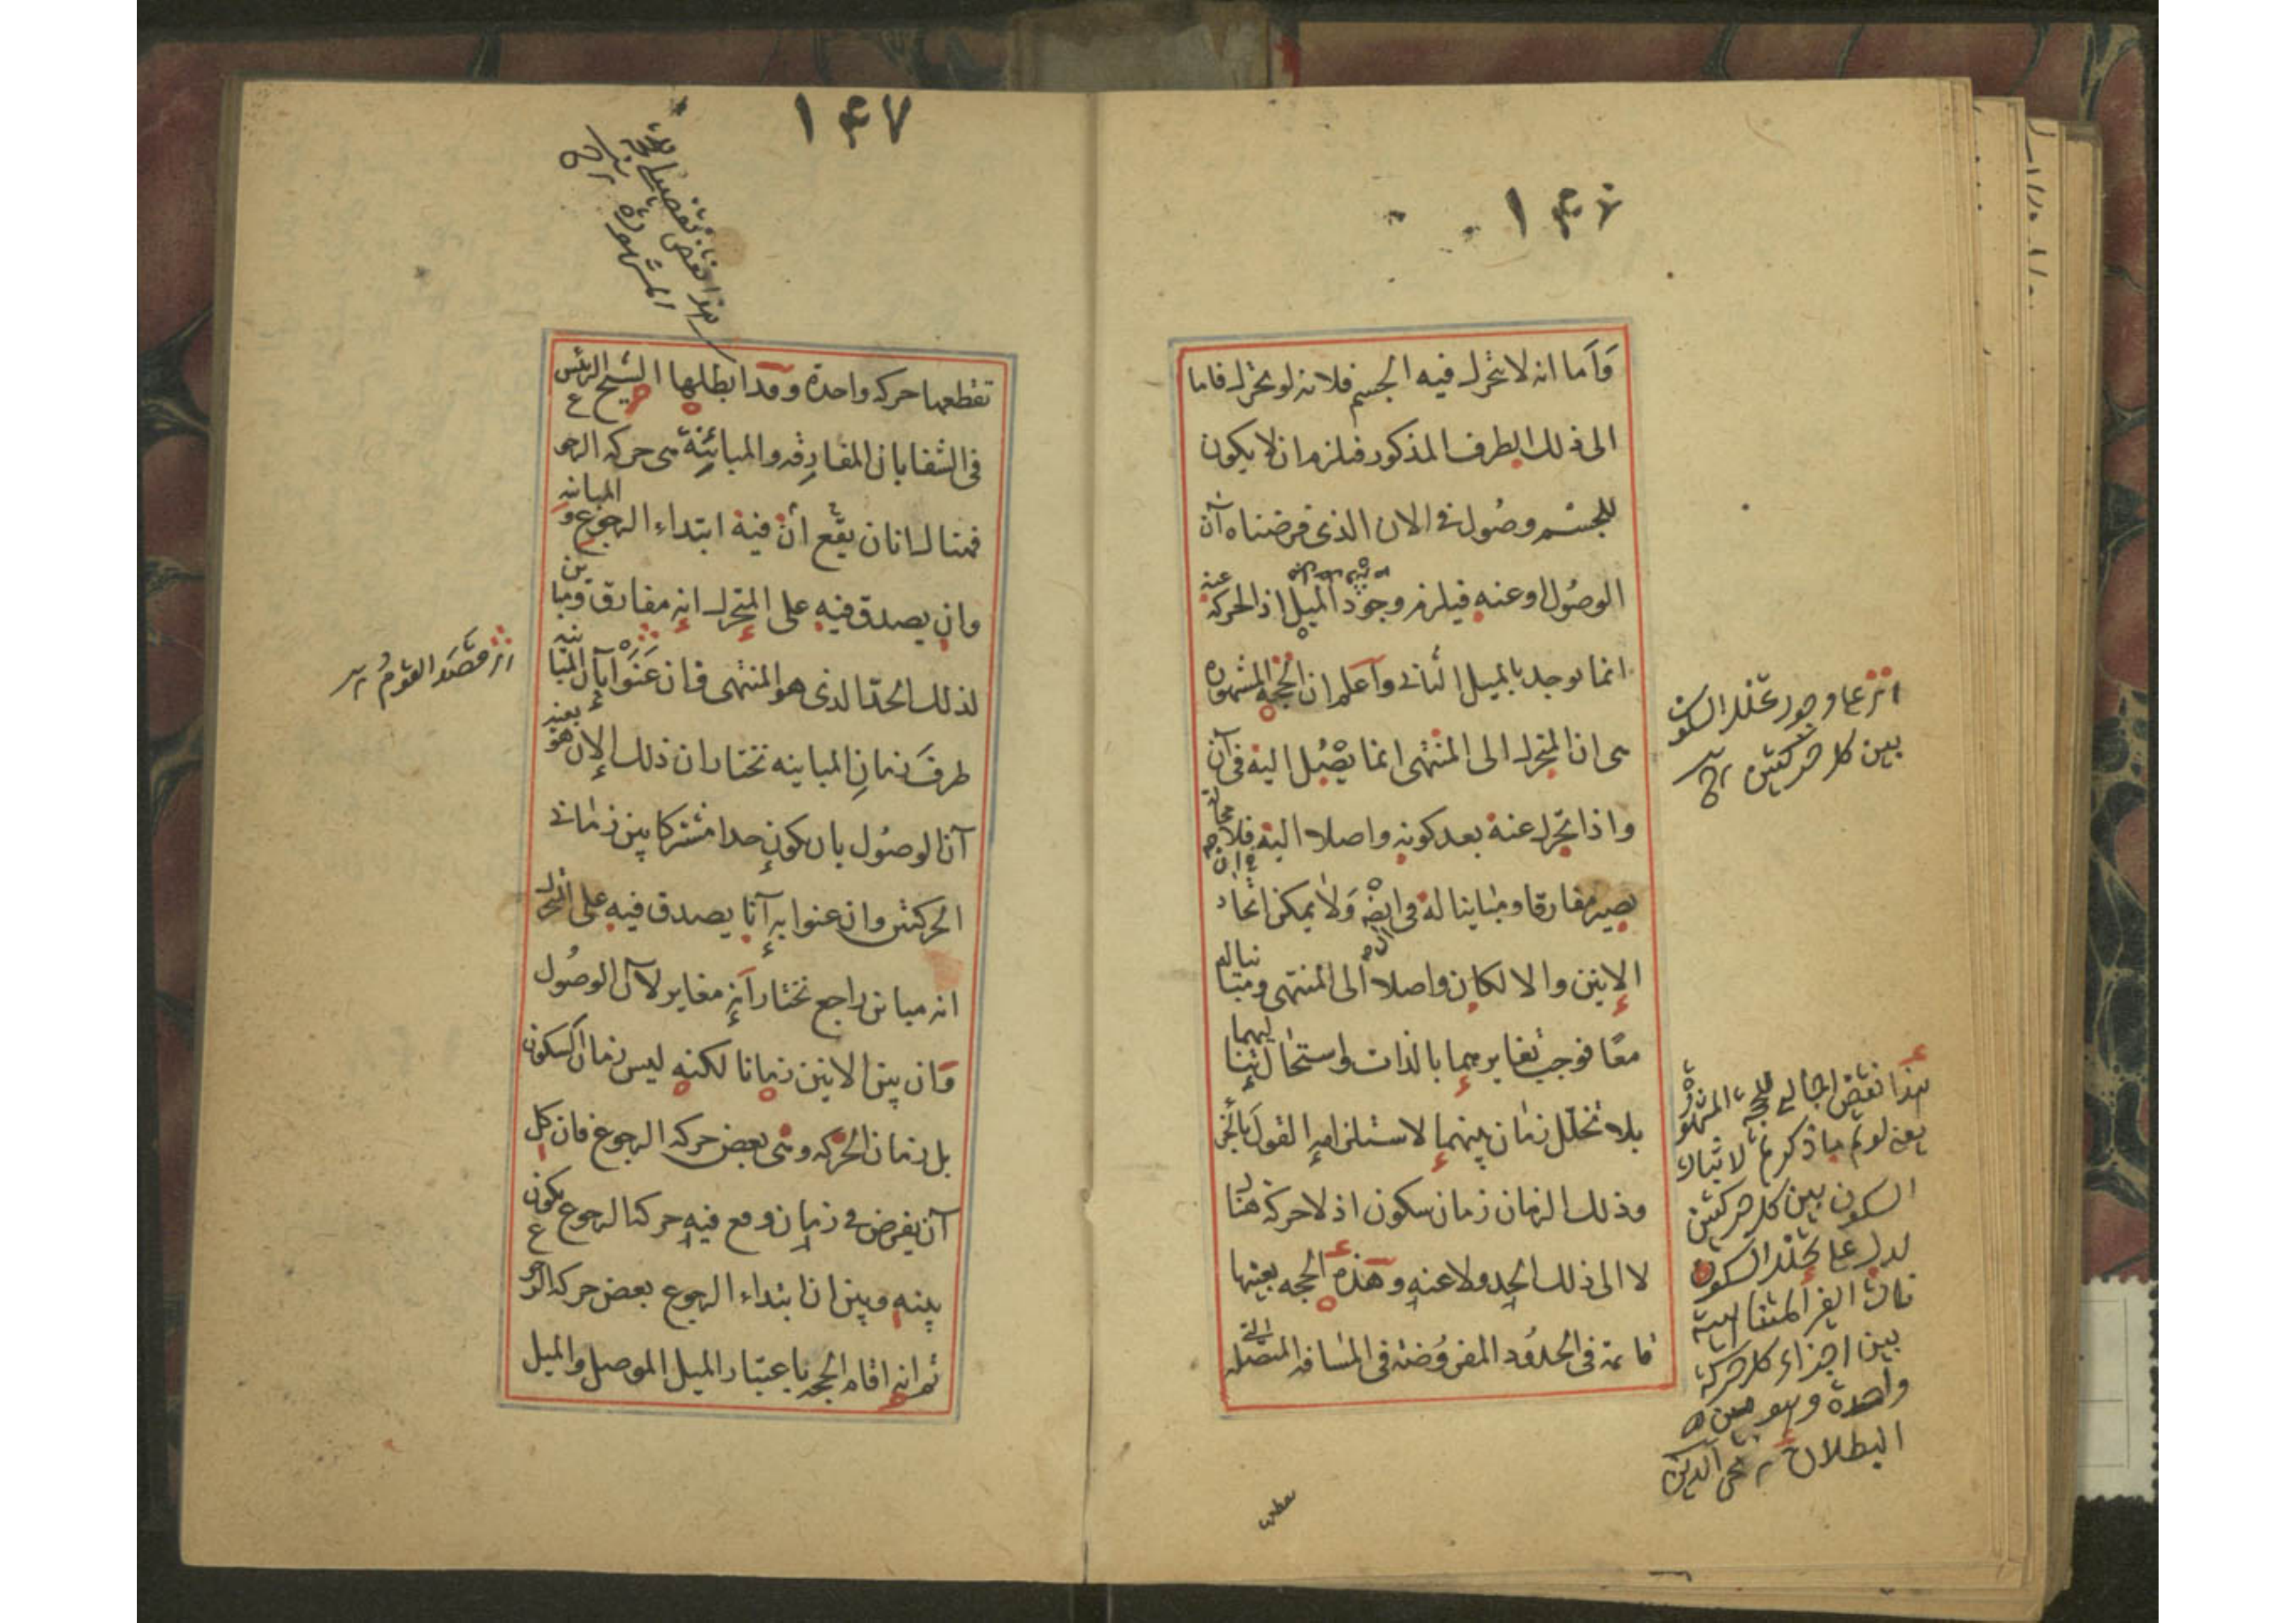 ١٤٦
وأما انه لا يتحرك فيه الجسم فلانه لو تحرك فاما
الى ذلك الطرف المذكور فيلزم ان لا يكون
للجسم وصول في الان الذي فرضناه آن
الوصول او عنه فيلزم وجود الميل اذ الحركة عنه
انما توجد بالميل الثاني واعلم ان الحجة المشهورة
هى ان المتحرك الى المنتهى انما يصل اليه فى آن
واذا تحرك عنه بعد كونه واصلا اليه فلا محالة
يصير مفارقا ومباينا له فى ايضه ولا يمكن اتحاد
الانين والا لكان واصلا الى المنتهى ومباينا له
معا فوجب تغايرهما بالذات واستحال تتاليهما
بلا تخلل زمان بينهما لاستلزامه القول بالجزء
وذلك الزمان زمان سكون اذ لا حركة هناك
لا الى ذلك الحد ولا عنه وهذه الحجه بعينها
قائمة فى الحدود المفروضة فى المسافه المتصله التى
اثر على وجود تخلل السكون
بين كل حركتين
هذا نقض اجمالي للحجة المشهورة
يعنى لو تم ما ذكرتم لاثبات
السكون بين كل حركتين
لدل على تخلل السكون
الغير المتناهية
بين اجزاء كل حركة
واحدة وهو بين
البطلان
١٤٧
هذا نقض تفصيلي للحجة
المشهورة
تقطعها حركه واحدة وقد ابطلها الشيخ الرئيس
فى الشفا بان المفارقه والمباينة هى حركه الرجوع
فهناك انان يقع أن فيه ابتداء الرجوع والمباينه
وان يصدق فيه على المتحرك انه مفارق ومباين
لذلك الحد الذى هو المنتهى فان عنوا بان المباينه
طرف زمان المباينه نختار ان ذلك الان هو بعينه
آن الوصول بان يكون حدا مشتركا بين زماني
الحركتين وان عنوا به آنا يصدق فيه على المتحرك
انه مباين راجع نختار انه مغاير لان الوصول
وان بين الانين زمانا لكنه ليس زمان السكون
بل زمان الحركه وهى بعض حركه الرجوع فان كل
آن يفرض في زمان وقع فيه حركة الرجوع يكون
بينه وبين ان ابتداء الرجوع بعض حركه الرجوع
ثم انه اقام الحجه باعتبار الميل الموصل والميل